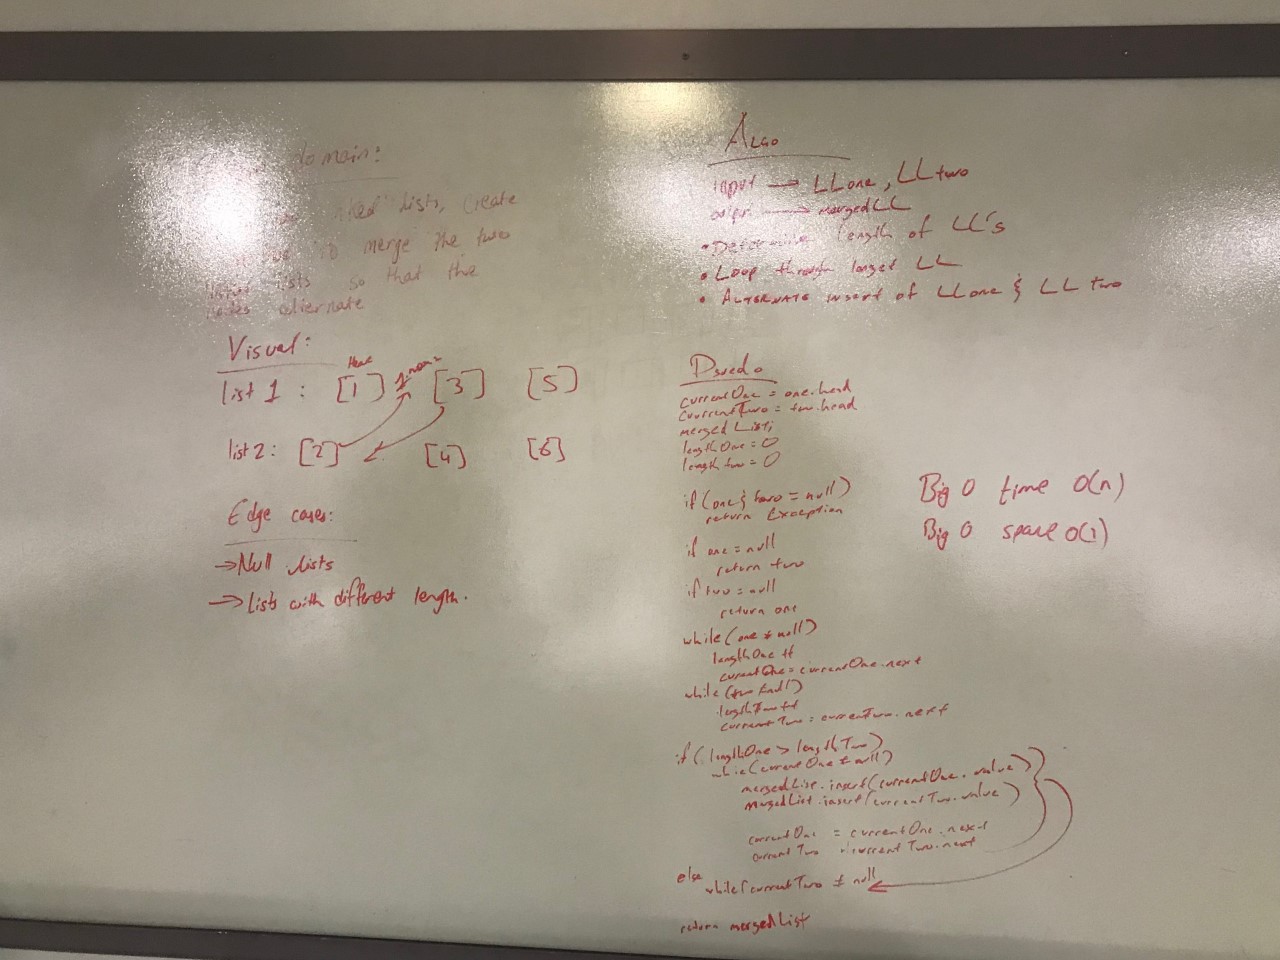 domain:
lists, create
to merge the two
lists so that the
alternate
Visual:
Head
list 1 : [1] [3] [5]
list 2: [2] [4] [6]
Edge cases:
→ Null lists
→ Lists with different length.
ALGO
input → LL one, LL two
output → merged LL
• Determine length of LL's
• Loop through longest LL
• ALTERNATE insert of LL one & LL two
Psuedo
currentOne = one.head
currentTwo = two.head
merged List;
lengthOne = 0
length two = 0
if (one & two = null)
return Exception
if one = null
return two
if two = null
return one
while (one ≠ null)
lengthOne ++
currentOne = currentOne.next
while (two ≠ null)
lengthTwo ++
currentTwo = currentTwo.next
if (lengthOne > lengthTwo)
while (currentOne ≠ null)
mergedList.insert(currentOne.value)
mergedList.insert(currentTwo.value)
currentOne = currentOne.next
currentTwo = currentTwo.next
else
while (currentTwo ≠ null
return mergedList
Big O time O(n)
Big O space O(1)